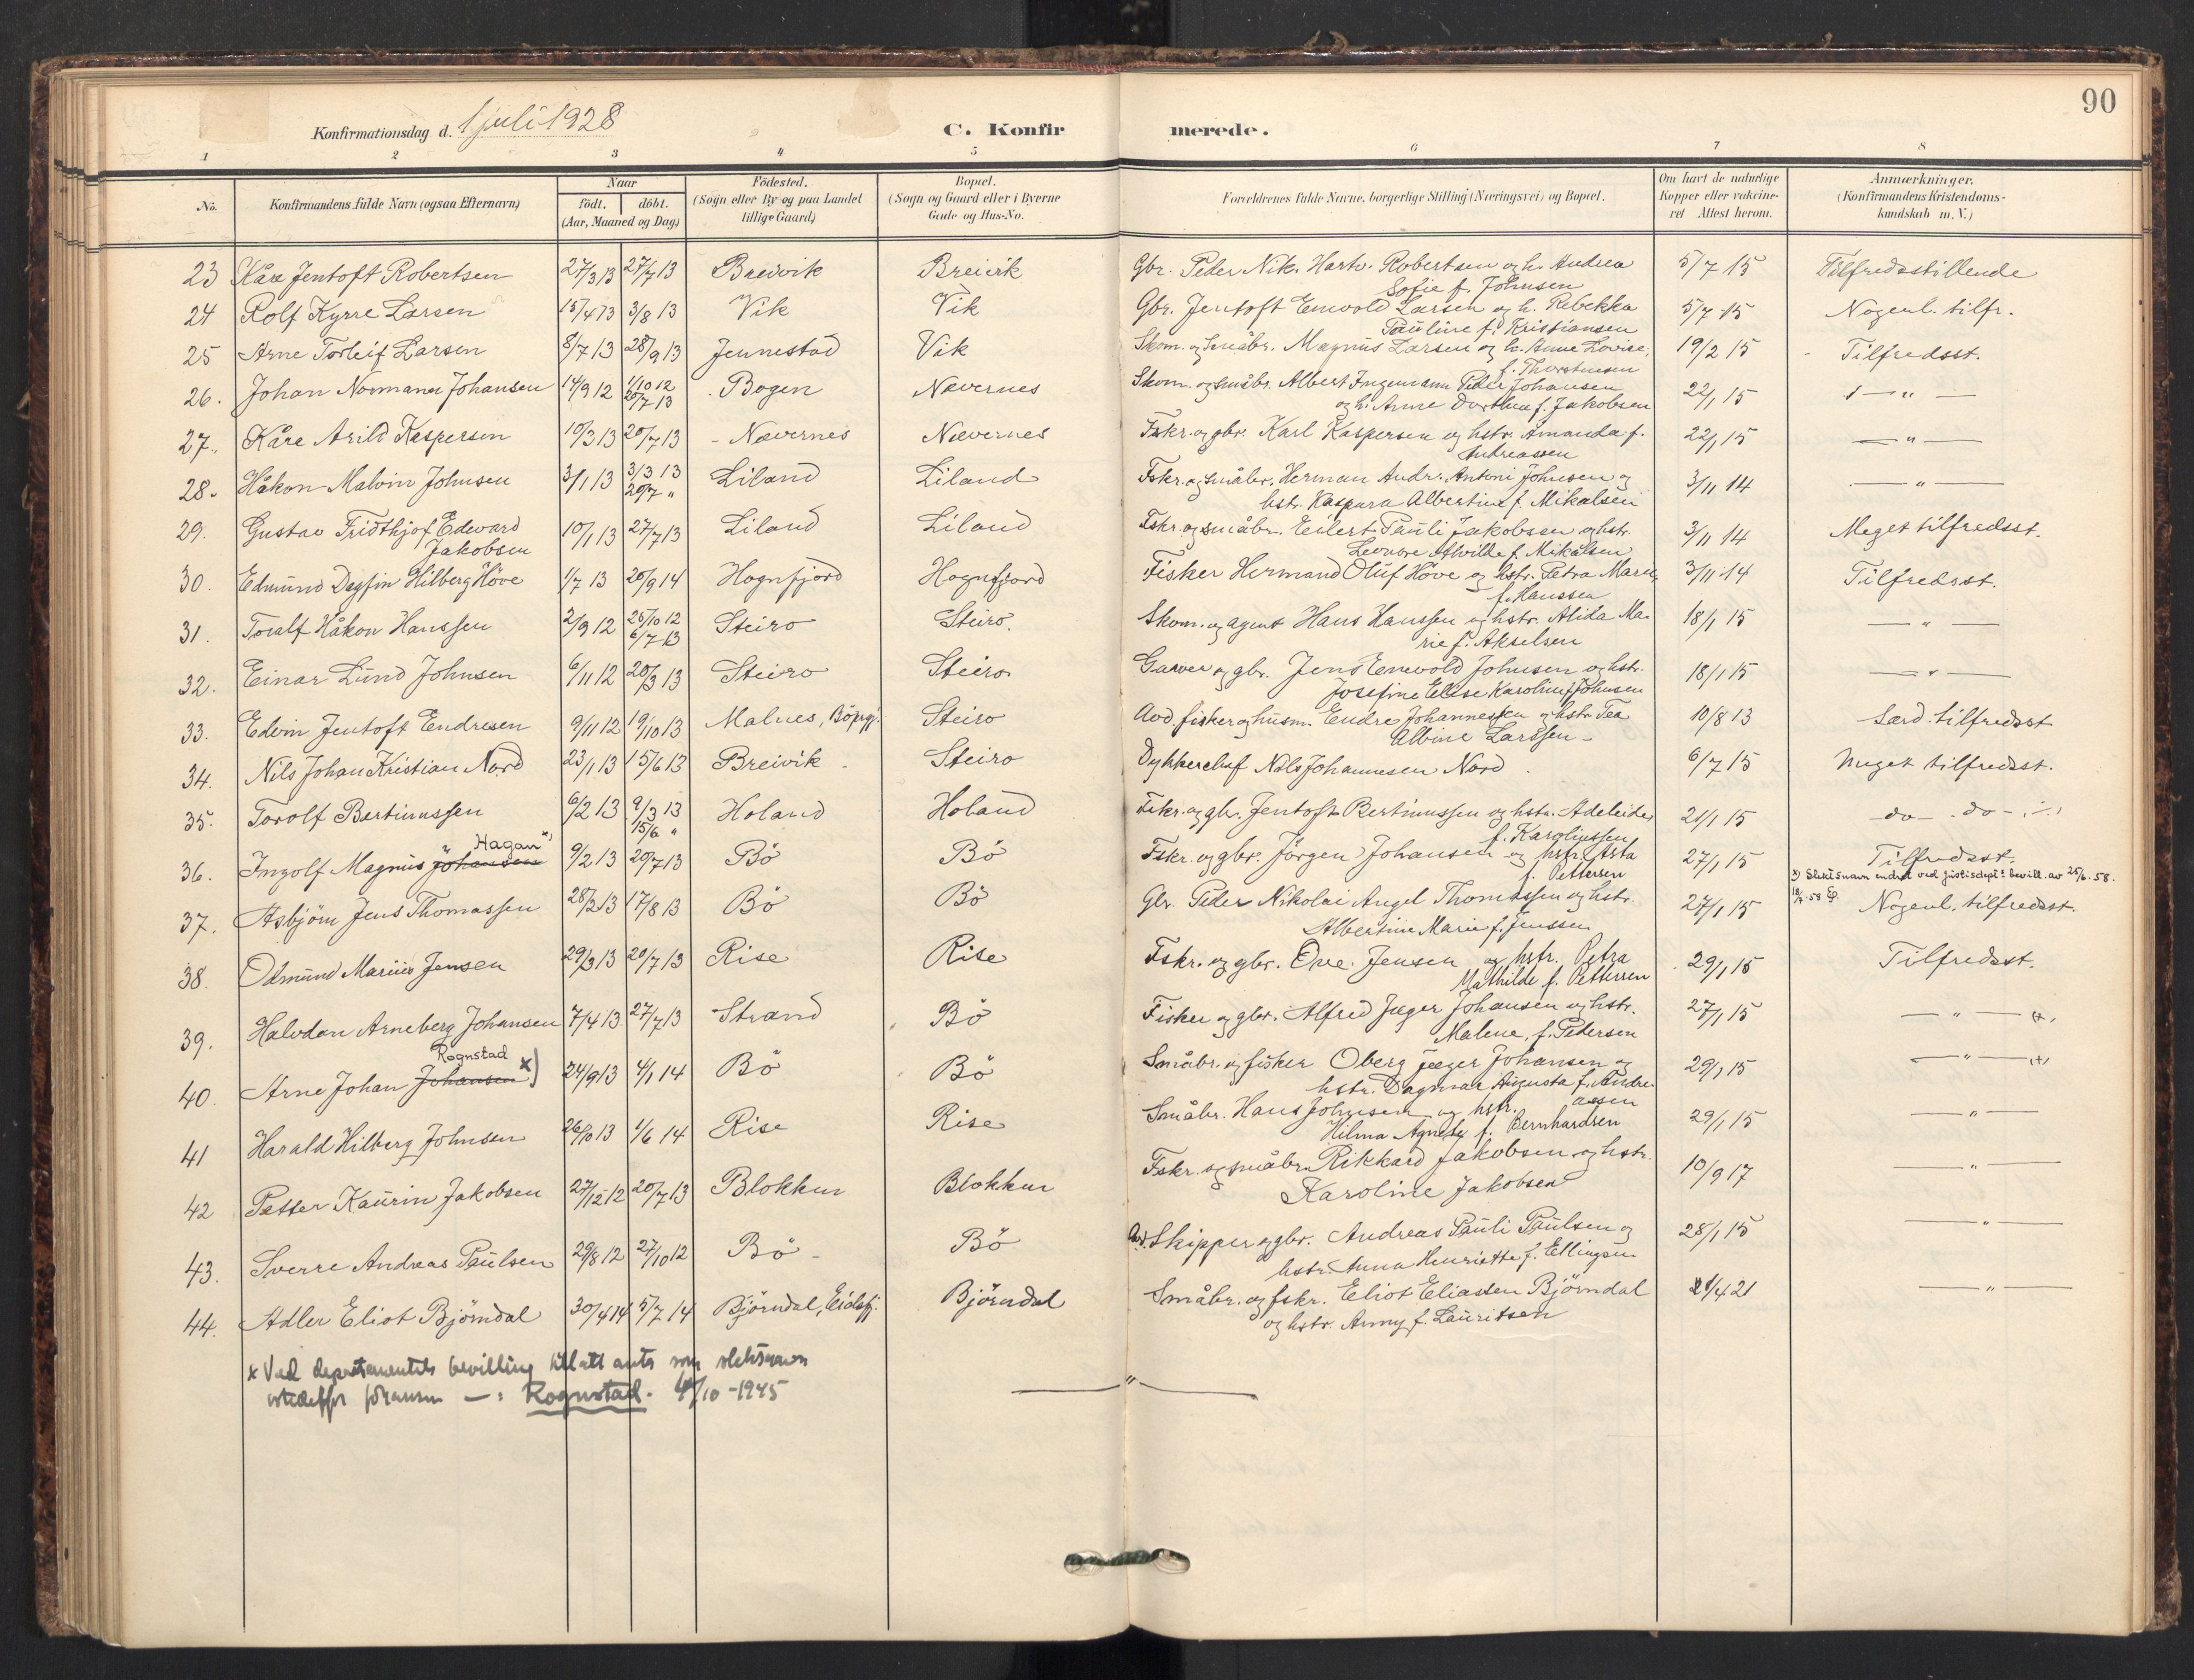 90
Konfirmationsdag d. 1 juli 1928
C. Konfirmerede.
1 2 3 4 5 6 7 8
No.
Konfirmandens fulde Navn (ogsaa Efternavn)
Naar
født. døbt.
(Aar, Maaned og Dag)
Födested.
(Sogn eller By og paa Landet
tillige Gaard)
Bopæl.
(Sogn og Gaard eller i Byerne
Gade og Hus-No.
Forældrenes fulde Navne, borgerlige Stilling (Næringsvei) og Bopæl.
Om havt de naturlige
Kopper eller vakcine-
ret Attest herom.
Anmærkninger.
(Konfirmandens Kristendoms-
kundskab m. V.)
23 Kåre Jentoft Robertsen 27/3 13 27/7 13 Breivik Breivik Gbr. Peder Nik. Hartv. Robertsen og h. Andrea 5/7 15 Tilfredsstillende
Sofie f. Johnsen
24 Rolf Kyrre Larsen 15/4 13 3/8 13 Vik Vik Gbr. Jentoft Enevold Larsen og h. Rebekka 5/7 15 Nogenl. tilfr.
Pauline f. Kristiansen
25 Arne Torleif Larsen 8/7 13 28/9 13 Jennestad Vik Skom. og Småbr. Magnus Larsen og h. Anne Lovise, 19/2 15 Tilfredsst.
f. Thorstensen
26. Johan Normann Johansen 14/9 12 1/10 12 Bogen Nævernes Skom. og småbr. Albert Ingemann Peder Johansen 22/1 15 — " —
20/7 13 og h. Anne Dorthea f. Jakobsen
27. Kåre Arild Kaspersen 10/3 13 20/7 13 Nævernes Nævernes Fskr. og gbr. Karl Kaspersen og hstr. Amanda f. 22/1 15 — " —
Andreassen
28. Håkon Malvin Johnsen 3/1 13 3/3 13 Liland Liland Fskr. og småbr. Herman Andr. Antoni Johnsen og 3/11 14 — " —
20/7 " hstr. Kaspara Albertine f. Mikalsen
29. Gustav Fridthjof Edward 10/1 13 27/7 13 Liland Liland Fskr. og småbr. Eilert Pauli Jakobsen og hstr. 3/11 14 Meget tilfredsst.
Jakobsen Leonore Alvilde f. Mikalsen
30. Edmund Dagfin Hilberg Höve 1/7 13 20/9 14 Hognfjord Hognfjord Fisker Hermand Oluf Höve og hstr. Petra Marie, 3/11 14 Tilfredsst.
f. Hanssen
31. Toralf Håkon Hanssen 2/9 12 26/10 12 Steiro Steiro. Skom. og agent Hans Hanssen og hstr. Alida Ma- 18/1 15 — " —
6/7 13 rie f. Akselsen
32. Einar Lund Johnsen 6/11 12 20/3 13 Steiro Steiro Garver og gbr. Jens Enevold Johnsen og hstr. 18/1 15 — " —
Josefine Elise Karoline f. Johnsen
33. Edvin Jentoft Endresen 9/11 12 19/10 13 Malnes, Böprgj. Steiro Avd. fisker og husm. Endre Johannessen og hstr. Tea 10/8 13 Særd. tilfredsst
Albine Larssen
34. Nils Johan Kristian Nord 23/1 13 15/6 13 Breivik Steiro Dykkerchef Nils Johannesen Nord 6/7 15 Meget tilfredsst.
35. Torolf Bertinussen 6/2 13 9/3 13 Holand Holand Fskr. og gbr. Jentoft Bertinussen og hstr. Adeleide 21/1 15 -do- -do-
15/6 " f. Karoliussen
Hagan x)
36. Ingolf Magnus Johansen 9/2 13 20/7 13 Bö Bö Fskr. og gbr. Jörgen Johansen og hstr. Asta 27/1 15 Tilfredsst.
f. Pettersen
x) Slektsnavn endret ved Justisdept.s bevill. av 25/6. 58.
37. Asbjörn Jens Thomassen 28/2 13 17/8 13 Bö Bö Gbr. Peder Nikolai Angel Thomassen og hstr. 27/1 15 Nogenl. tilfredsst.
Albertine Marie f. Jenssen
38. Odmund Marius Jensen 29/3 13 20/7 13 Rise Rise Fskr. og gbr. Ove Jensen og hstr. Petra 29/1 15 Tilfredsst.
Mathilde f. Pettersen
39. Halvdan Arneberg Johansen 7/4 13 27/7 13 Strand Bö Fisker og gbr. Alfred Jæger Johansen og hstr. 27/1 15 — " — (+)
Malene, f. Pedersen
Rognstad x)
40. Arne Johan Johansen 24/9 13 4/1 14 Bö Bö Småbr. og fisker Oberg Jæger Johansen og 29/1 15 — " — (+)
hstr. Dagmar Augusta f. Andre-
asen
41 Harald Hilberg Johnsen 26/10 13 1/6 14 Rise Rise Småbr. Hans Johnsen og hstr. 29/1 15 — " —
Hilma Agnete f. Bernhardsen
42 Petter Kaurin Jakobsen 27/12 12 20/7 13 Blokken Blokken Fskr. og småbr. Rikkard Jakobsen og hstr. 10/9 17 — " —
Karoline Jakobsen
43. Sverre Andreas Paulsen 29/8 12 27/10 12 Bö Bö Avd. Skipper og gbr. Andreas Pauli Paulsen og 28/1 15 — " —
hstr. Anna Henriette f. Ellingsen
44. Adler Eliot Björndal 30/4 14 5/7 14 Björndal, Eidsfj. Björndal Småbr. og fskr. Eliot Eliassen Björndal 21/4 21 — " —
og hstr. Anny f. Lauritsen
x Ved departementets bevilling tillatt anta som slektsnavn
istedetfor Johansen —: Rognstad. 4/10 -1945
— " —